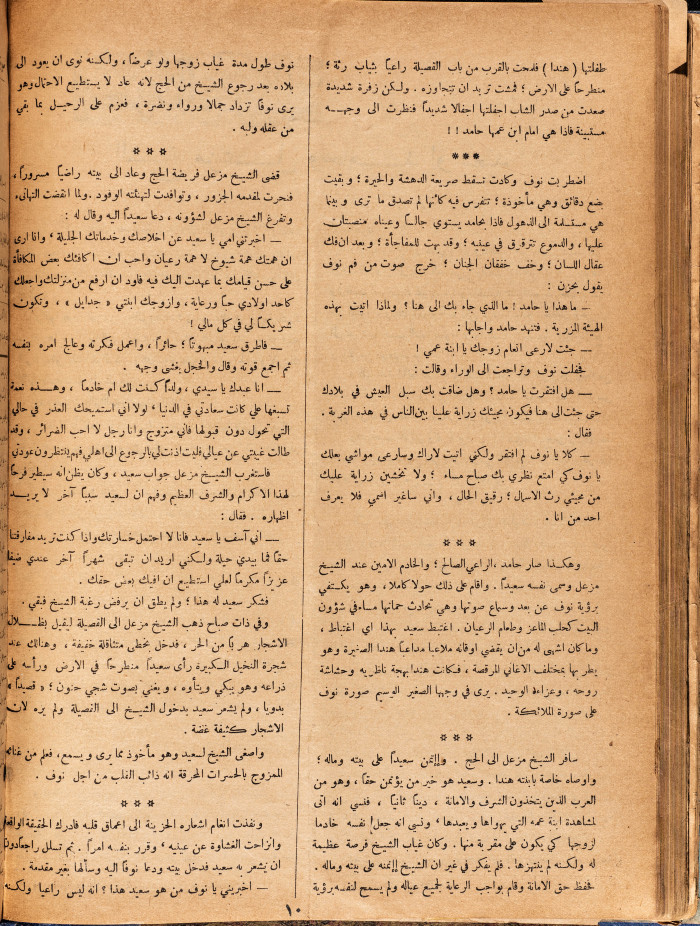 طفلتها ( هندا ) فلاحت بالقرب من باب الفصيلة راعياً بثياب رثة ؛
منطرحاً على الارض ؛ فمشت تريد ان تتجاوزه . ولكن زفرة شديدة
صعدت من صدر الشاب اجفلتها اجفالا شديداً فنظرت الى وجهه
مستبينة فاذا هي امام ابن عمها حامد ! !
***
اضطربت نوف وكادت تسقط صريعة الدهشة والحيرة ؛ وبقيت
بضع دقائق وهي مأخوذة ؛ تتفرس فيه كأنها لم تصدق ما ترى وبينما
هي مستسلمة الى الذهول فاذا بحامد يستوي جالساً وعيناه منصبتان
عليها ، والدموع تترقرق في عينيه ؛ وقد بهت للمفاجأة ؛ وبعد ان فك
عقال اللسان ؛ وخف خفقان الجنان ؛ خرج صوت من فم نوف
يقول بحزن :
— ما هذا يا حامد ! ما الذي جاء بك الى هنا ؟ ولماذا اتيت بهذه
الهيئة المزرية . فتنهد حامد واجابها :
— جئت لارعى انعام زوجك يا ابنة عمي !
فجفلت نوف وتراجعت الى الوراء وقالت :
— هل افتقرت يا حامد ؟ وهل ضاقت بك سبل العيش في بلادك
حتى جئت الى هنا فيكون مجيئك زراية علينا بين الناس في هذه الغربة .
فقال :
— كلا يا نوف لم افتقر ولكني اتيت لاراك وسارعى مواشي بعلك
يا نوف كي امتع نظري بك صباح مساء ؛ ولا تخشين زراية عليك
من مجيئي رث الاسمال ؛ رقيق الحال ، واني ساغير اسمي فلا يعرف
احد من انا .
***
وهكذا صار حامد ، الراعي الصالح ؛ والخادم الامين عند الشيخ
مزعل وسمى نفسه سعيداً . واقام على ذلك حولا كاملا ، وهو يكتفي
برؤية نوف عن بعد وسماع صوتها وهي تحادث حماتها مساء في شؤون
البيت كحلب الماعز وطعام الرعيان . اغتبط سعيد بهذا اي اغتباط ،
وما كان اشهى له من ان يقضي اوقاته ملاعباً مداعباً هندا الصغيرة وهو
يطربها بمختلف الاغاني المرقصة ، فكانت هندا بهجة ناظريه وحشاشة
روحه ، وعزاءه الوحيد . يرى في وجهها الصغير الوسيم صورة نوف
على صورة الملائكة .
***
سافر الشيخ مزعل الى الحج . وائتمن سعيداً على بيته وماله ؛
واوصاه خاصة بابنته هندا . وسعيد هو خير من يؤتمن حقاً ، وهو من
العرب الذين يتخذون الشرف والامانة ، ديناً ثانياً ، فنسي انه اتى
لمشاهدة ابنة عمه التي يهواها و يعبدها ، ونسي انه جعل نفسه خادما
لزوجها كي يكون على مقربة منها . وكان غياب الشيخ فرصة عظيمة
له ولكنه لم ينتهزها . فلم يفكر في غير ان الشيخ ائتمنه على بيته وماله .
فحفظ حق الامانة وقام بواجب الرعاية لجميع عياله ولم يسمح لنفسه برؤية
نوف طول مدة غياب زوجها ولو عرضاً ، ولكنه نوى ان يعود الى
بلاده بعد رجوع الشيخ من الحج لانه عاد لا يستطيع الاحتمال وهو
يرى نوفاً تزداد جمالا ورواء ونضرة ، فعزم على الرحيل بما بقي
من عقله ولبه .
***
قضى الشيخ مزعل فريضة الحج وعاد الى بيته راضياً مسروراً ،
فنحرت لمقدمه الجزور ، وتوافدت لتهنئته الوفود . ولما انقضت التهانىء
وتفرغ الشيخ مزعل لشؤونه ، دعا سعيداً اليه وقال له :
— اخبرتني امي يا سعيد عن اخلاصك وخدماتك الجليلة ، وانا ارى
ان همتك همة شيوخ لا همة رعيان واحب ان اكافئك بعض المكافأة
على حسن قيامك بما عهدت اليك فيه فاود ان ارفع من منزلتك واجعلك
كاحد اولادي حباً ورعاية ، وازوجك ابنتي « جدايل » ، وتكون
شريكاً لي في كل مالي !
— فاطرق سعيد مبهوتاً ؛ حائراً ، واعمل فكرته وعالج امره بنفسه
ثم اجمع قوته وقال والخجل يغشى وجهه .
— انا عبدك يا سيدي ، ولداً كنت لك ام خادماً ، وهذه نعمة
تسبغها علي كانت سعادتي في الدنيا ، لولا اني استميحك العذر في حالي
التي تحول دون قبولها فاني متزوج وانا رجل لا احب الضرائر ، وقد
طالت غيبتي عن عيالي فليت اذنت لي بالرجوع الى اهلي فهم ينتظرون عودتي
فاستغرب الشيخ مزعل جواب سعيد ، وكان يظن انه سيطير فرحاً
لهذا الاكرام والشرف العظيم وفهم ان لسعيد سبباً آخر لا يريد
اظهاره . فقال :
— اني آسف يا سعيد فانا لا احتمل خسارتك واذا كنت تريد مفارقتنا
حقاً فما بيدي حيلة ولكني اريد ان تبقى شهراً آخر عندي ضيفاً
عزيزاً مكرماً لعلي استطيع ان افيك بعض حقك .
فشكر سعيد له هذا ؛ ولم يطق ان يرفض رغبة الشيخ فبقي .
وفي ذات صباح ذهب الشيخ مزعل الى الفصيلة ليقيل بظلال
الاشجار هرباً من الحر ، فدخل بخطى متثاقلة خفيفة ، وهنالك عند
شجرة النخيل الكبيرة رأى سعيداً منطرحاً في الارض ورأسه على
ذراعه وهو يبكي ويتأوه ، ويغني بصوت شجي حنون ؛ « قصيداً »
بدوياً ، ولم يشعر سعيد بدخول الشيخ الى الفصيلة ولم يره لان
الاشجار كثيفة غضة .
واصغى الشيخ لسعيد وهو مأخوذ مما يرى و يسمع ، فعلم من غنائه
الممزوج بالحسرات المحرقة انه ذائب القلب من اجل نوف .
***
ونفذت انغام اشعاره الحزينة الى اعماق قلبه فادرك الحقيقة الواقعة
وانزاحت الغشاوة عن عينيه ، وقرر بنفسه امراً . ثم تسلل راجعاً دون
ان يشعر به سعيد فدخل بيته ودعا نوفاً اليه وسألها بغير مقدمة .
— اخبريني يا نوف من هو سعيد هذا ؟ انه ليس راعيا ولكنه
١٠